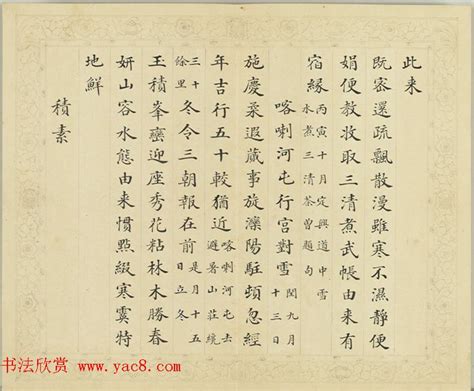 此来
既密還疏飄散漫雖寒不濕靜便
娟便教收取三清煮武帳由来有
宿縁丙寅十月定興道中雪
水煮三清茶曾題句
喀喇河屯行宮對雪閏九月
十三日
施慶柔遐蕆事旋灤陽駐頓忽經
年吉行五十較猶近喀喇河屯去
避暑山莊纔
三十
餘里冬令三朝報在前是月十五
日立冬
玉積峯巒迎座秀花粘林木勝春
妍山容水態由来慣點綴寒特
地鮮
積素
书法欣赏
www.yac8.com